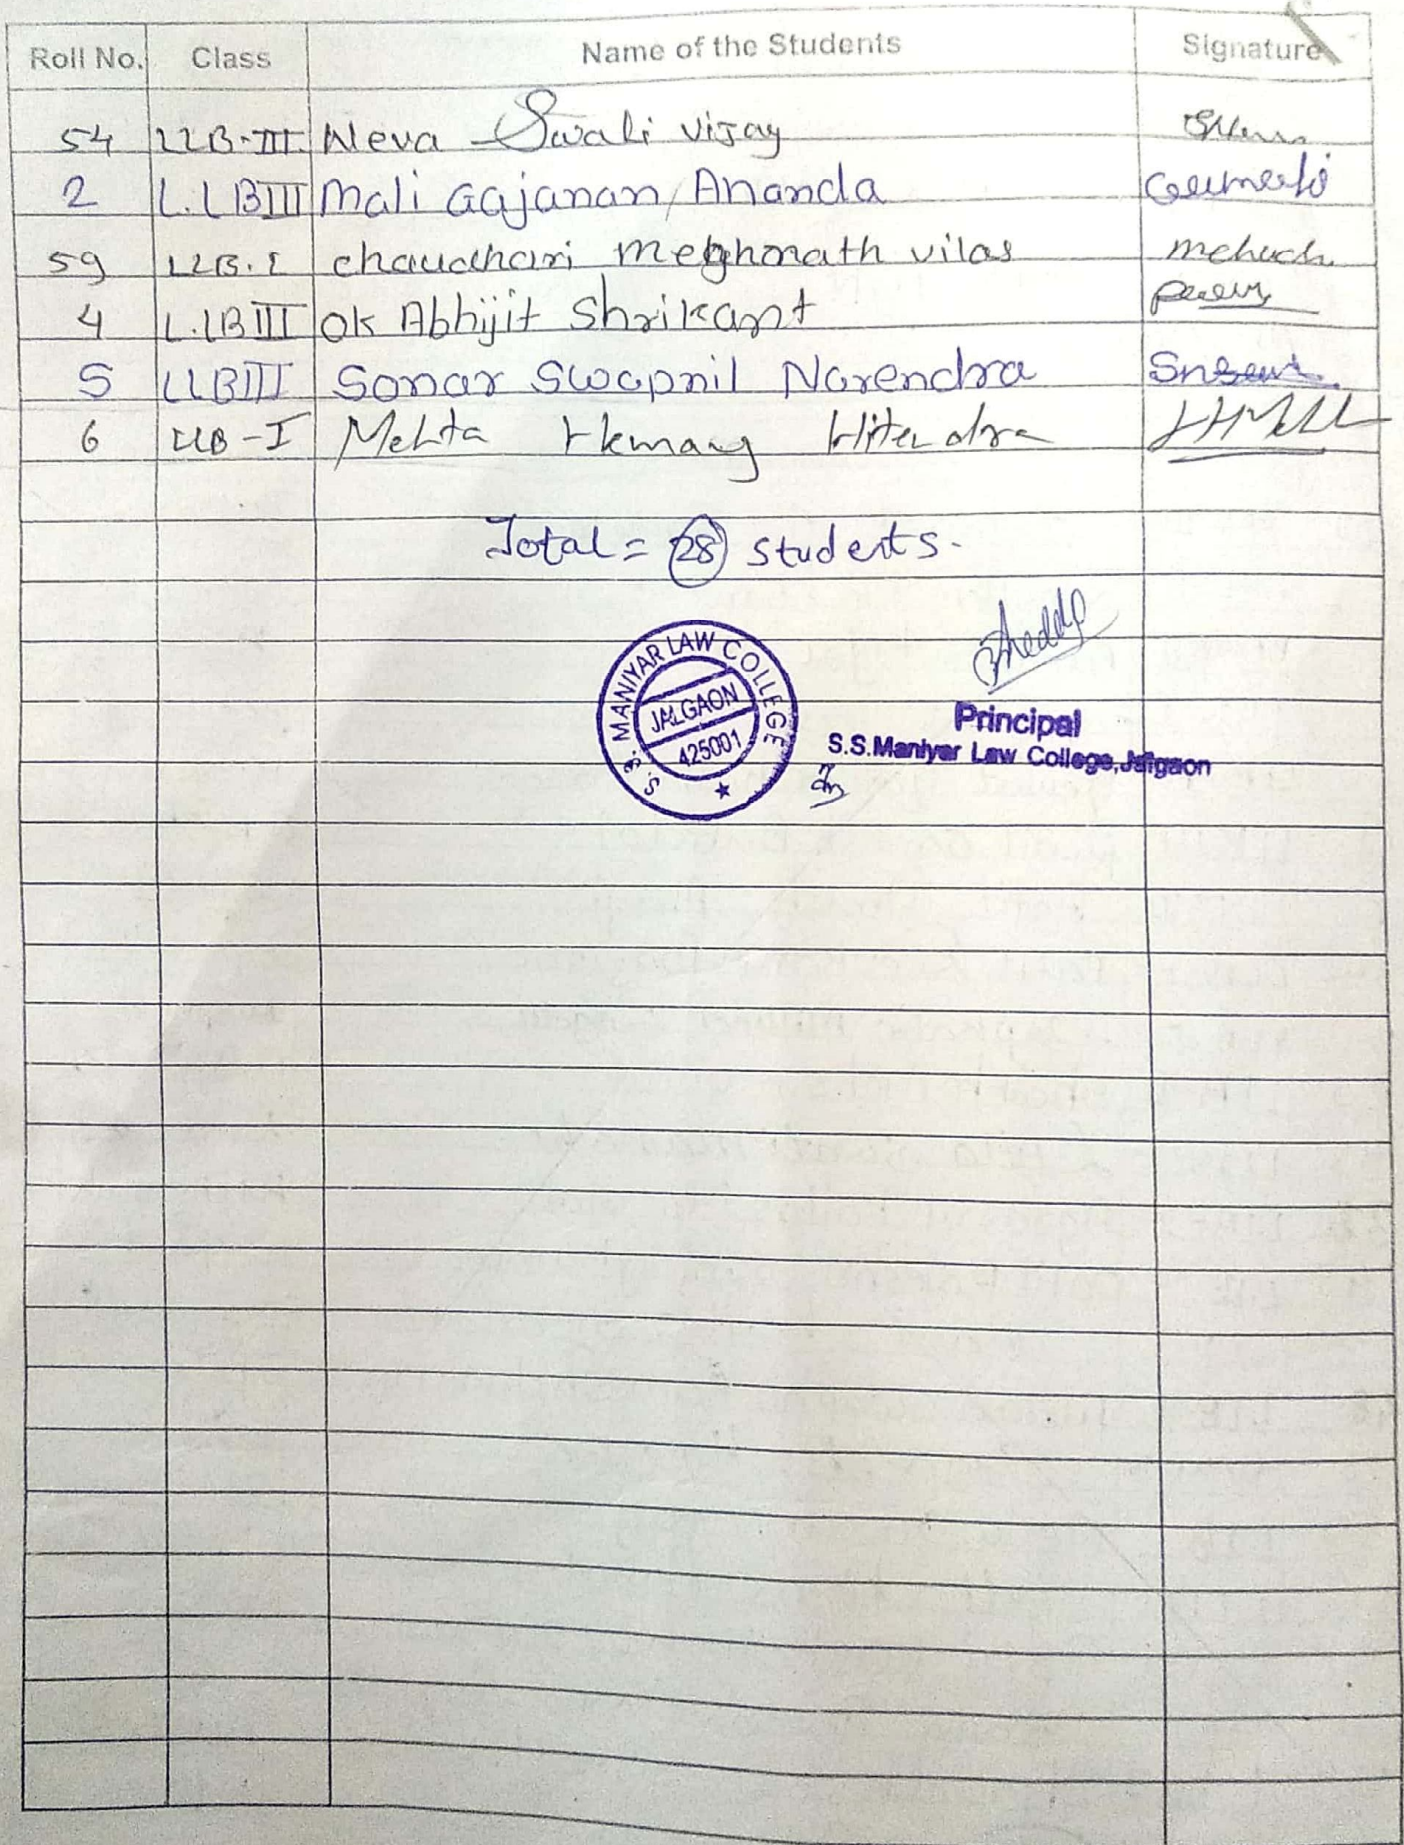 Roll No. Class Name of the Students Signature
54 LLB-III Neva Swali Vijay
2 L.LBIII Mali Gajanan Ananda
59 LLB.I chaudhari meghonath vilas
4 L.LBIII Ok Abhijit Shrikant
5 LLBIII Sonar Swapnil Narendra
6 LLB-I Mehta Hemang Hitendra
Total = 28 students.
S.S. MANIYAR LAW COLLEGE
JALGAON
425001
Principal
S.S.Maniyar Law College,Jalgaon